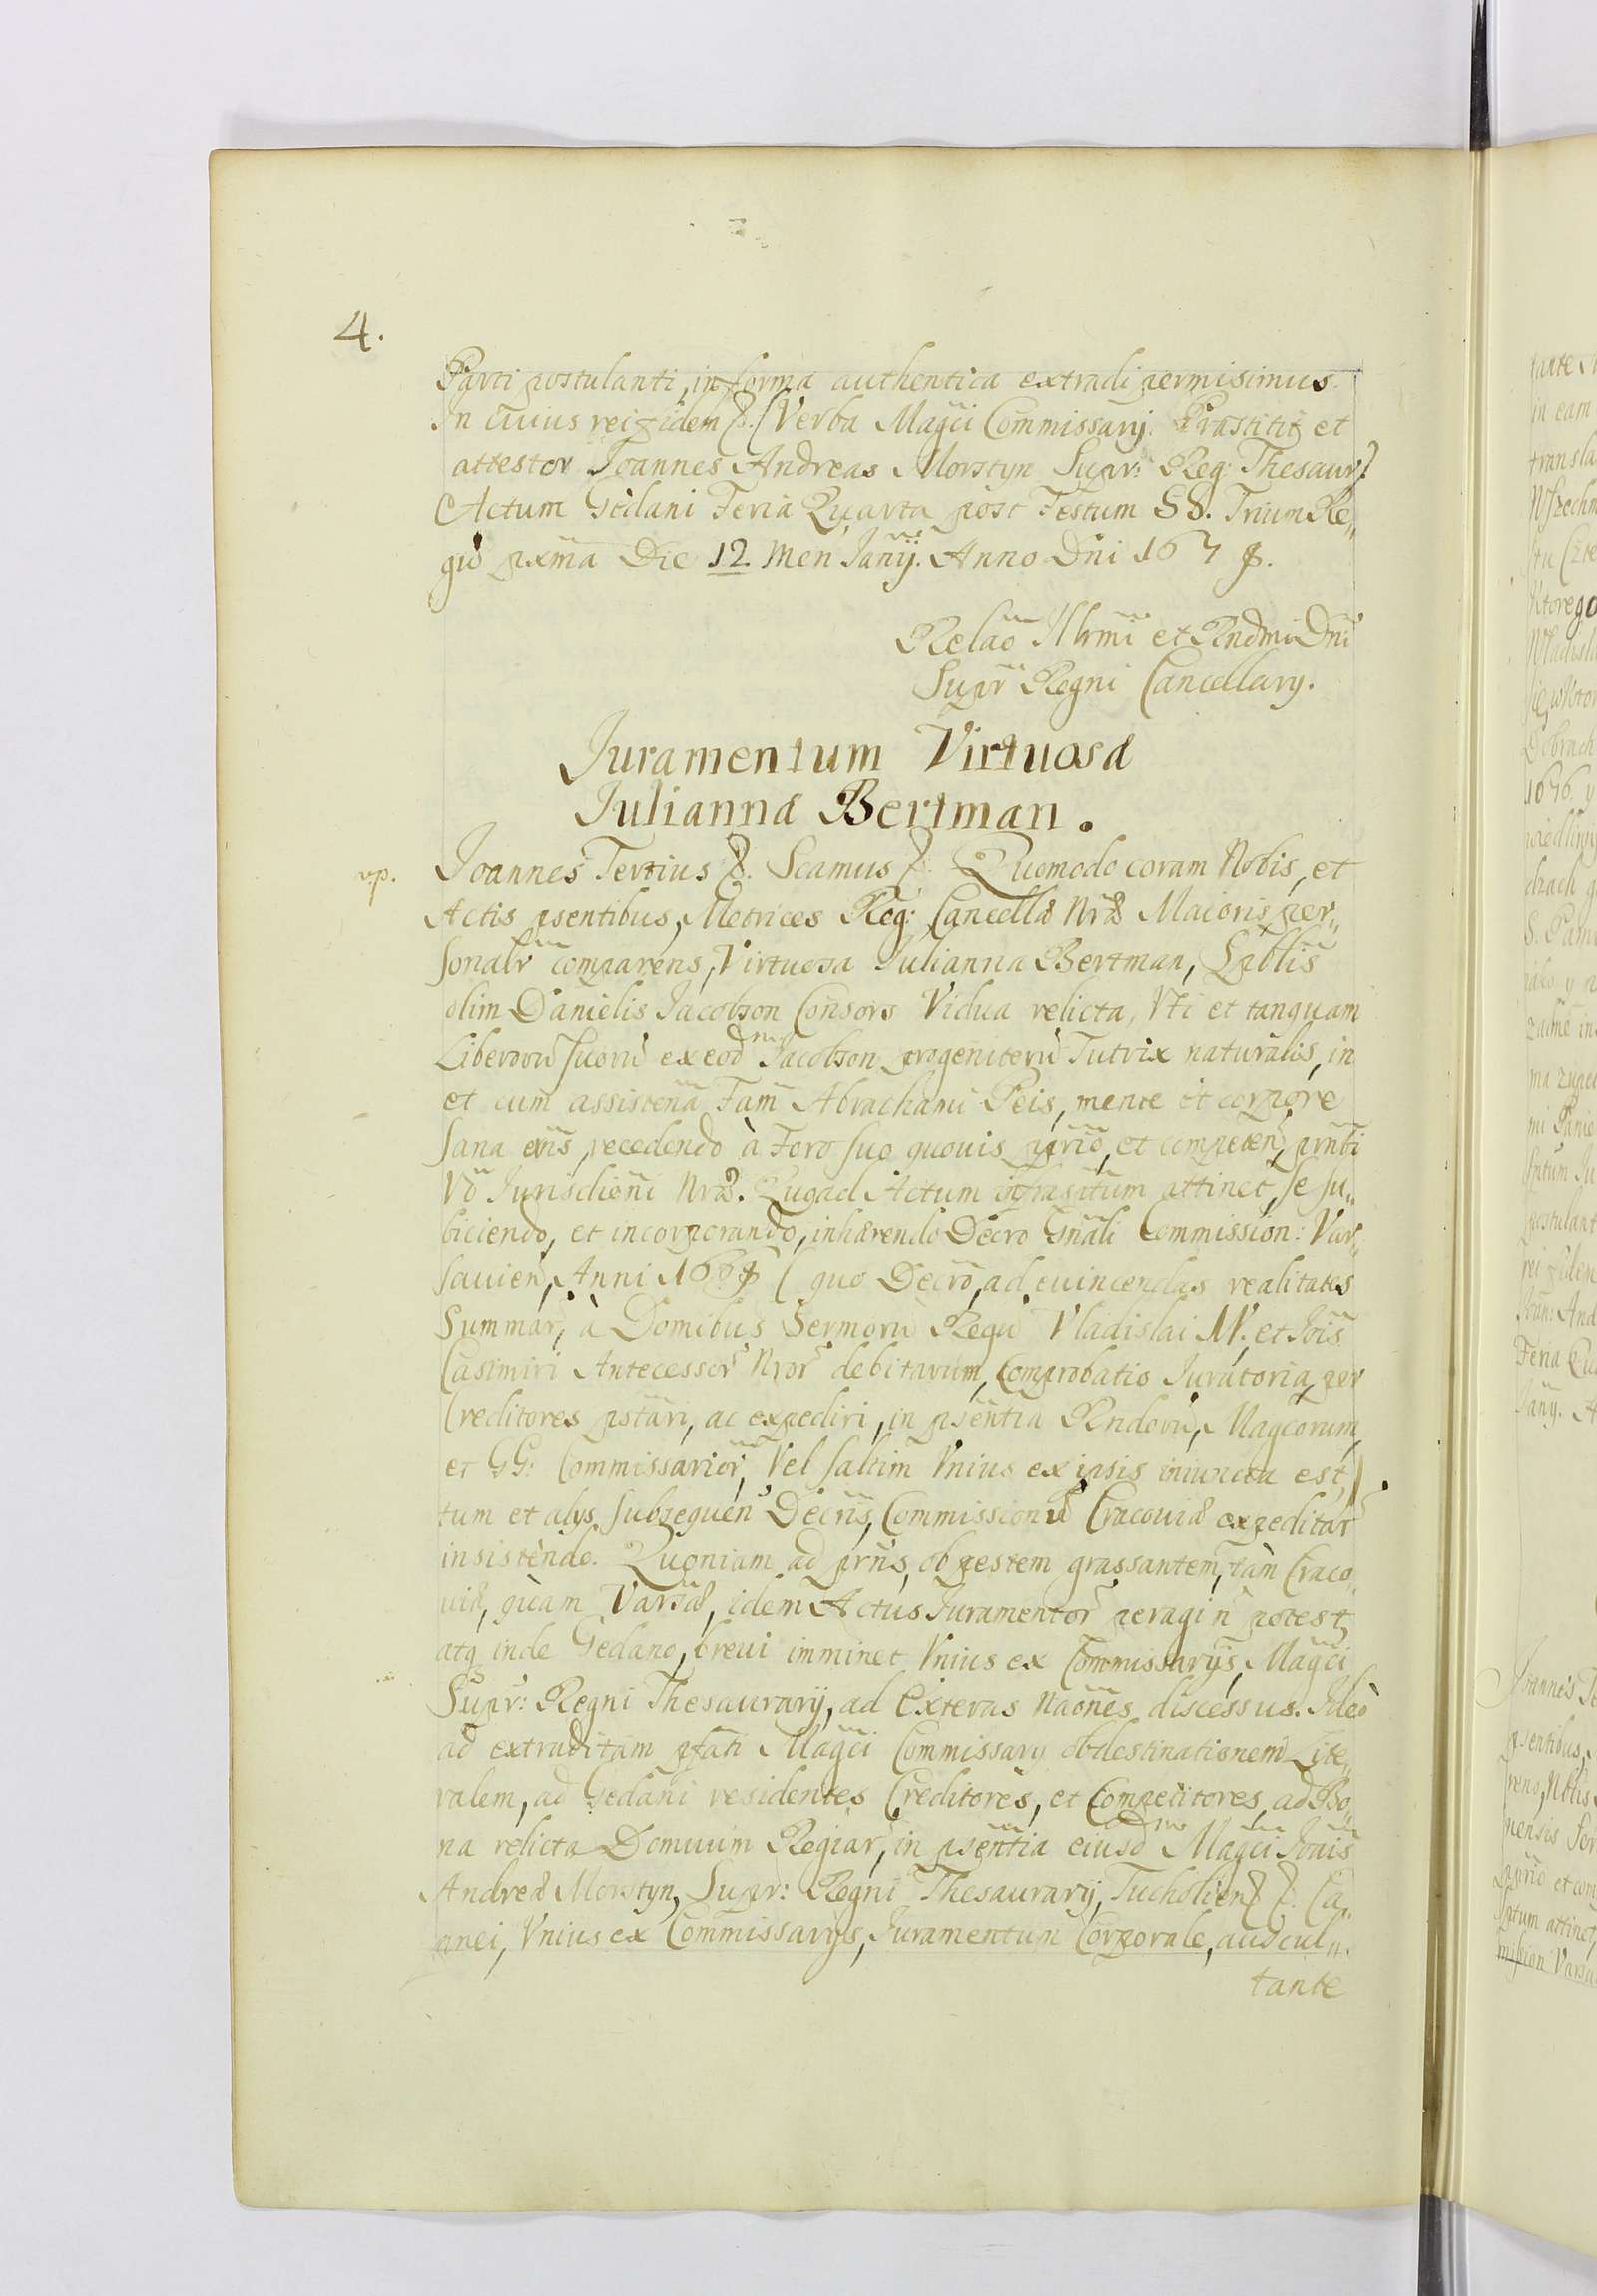 4.
Parti postulanti, in forma authentica extradi permisimus.
In cuius rei fidem &. (Verba Magci Commissarij. Prastitit et
attestor Joannes Andreas Morstyn Supr: Reg: Thesaur:
Actum Gedani Feria Quarta post Festum SS. Trium Re„
gũ pxma Die 12 Men Janij. Anno Dni 1678.
Relao Illrmi et Rndmi Dni
Supr Regni Cancellarij.
Juramentum Virtuosæ
Juliannæ Bertman.
vp. Joannes Tertius &. Scamus &. Quomodo coram Nobis, et
Actis psentibus, Metrices Reg: Cancellæ Nræ Maioris per„
sonalr comparens, Virtuosa Julianna Bertman, Spblis
olim Danielis Jacobson Consors Vidua relicta, Vti et tanquam
Liberorũ suorũ ex eod Jacobson progenitorũ Tutrix naturalis, in
et cum assistena Fam Abrachami Peis, mente et corpore
sana exns, recedendo à Foro suo quouis pprio, et competen, prnti
Vo Jurisdieni Nræ. Quo ad Actum infrascptum attinet, se su„
biciendo, et incorporando, inhærendo Decro Gnali Commission: Var„
sauien, Anni 1668 ( quo Decro, ad euincendas realitates
Summar, à Domibus Sermorũ Regũ Vladislai IV. et Jois
Casimiri Antecessor Nror debitarum, Comprobatio Juratoria, per
Creditores pstari, ac expediri, in psentia Rndorũ, Magcorum,
et GG: Commissarior, Vel saltim Vnius ex ipsis iniuncta est,)
tum et alys subsequen Decris, Commissionũ Cracouiæ expeditar
insistendo. Quoniam ad prns, ob pestem grassantem, tàm Craco„
uiæ, quam Varsæ, idem Actus Juramentor peragi n potest,
atq inde Gedano, breui imminet Vnius ex Commissarijs, Magci
Supr: Regni Thesaurarij, ad Exteras naones discessus. Ideo
ad extraditam pfati Magci Commissarij obdestinationem Lite„
ralem, ad Gedani residentes Creditores, et Competitores, ad Bo„
na relicta Domuum Regiar, in psentia eiusd Magci Jonis
Andreæ Morstyn, Supr: Regni Thesaurarij, Tucholien &. Ca„
pnei, Vnius ex Commissarijs, Juramentum Corporale, auscul„
tante